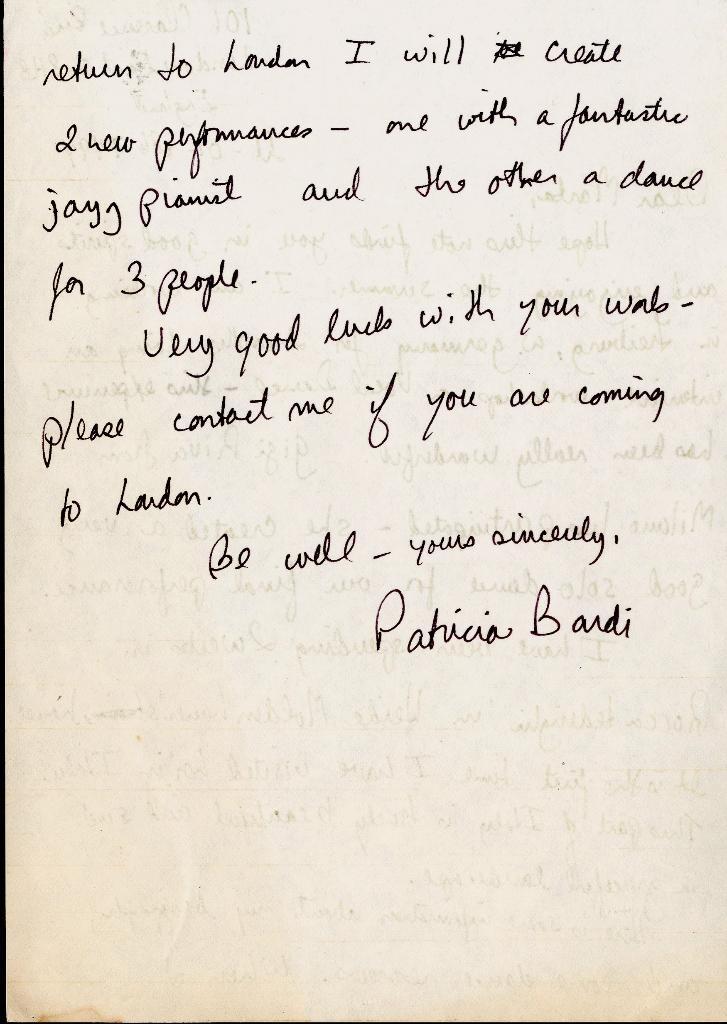 return to London I will create
2 new performances – one with a fantastic
jazz pianist and the other a dance
for 3 people.
Very good luck with your work –
please contact me if you are coming
to London.
Be well – yours sincerely,
Patricia Bardi